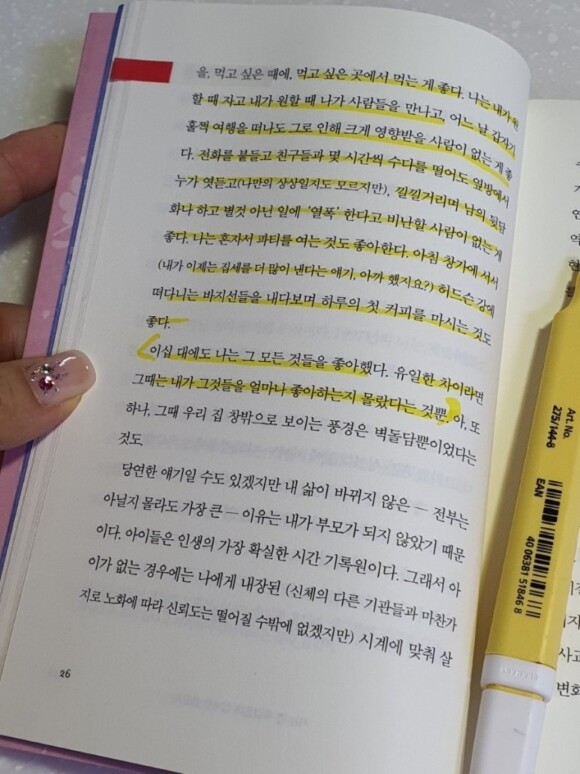 을, 먹고 싶은 때에, 먹고 싶은 곳에서 먹는 게 좋다. 나는 내가 원
할 때 자고 내가 원할 때 나가 사람들을 만나고, 어느 날 갑자기
훌쩍 여행을 떠나도 그로 인해 크게 영향받을 사람이 없는 게 좋
다. 전화를 붙들고 친구들과 몇 시간씩 수다를 떨어도 옆방에서
누가 엿듣고(나만의 상상일지도 모르지만), 낄낄거리며 남의 뒷담
화나 하고 별것 아닌 일에 '열폭'한다고 비난할 사람이 없는 게
좋다. 나는 혼자서 파티를 여는 것도 좋아한다. 아침 창가에 서서
(내가 이제는 집세를 더 많이 낸다는 얘기, 아까 했지요?) 허드슨 강에
떠다니는 바지선들을 내다보며 하루의 첫 커피를 마시는 것도
좋다.
이십 대에도 나는 그 모든 것들을 좋아했다. 유일한 차이라면
그때는 내가 그것들을 얼마나 좋아하는지 몰랐다는 것뿐. 아, 또
하나, 그때 우리 집 창밖으로 보이는 풍경은 벽돌담뿐이었다는
것도
당연한 얘기일 수도 있겠지만 내 삶이 바뀌지 않은 — 전부는
아닐지 몰라도 가장 큰 — 이유는 내가 부모가 되지 않았기 때문
이다. 아이들은 인생의 가장 확실한 시간 기록원이다. 그래서 아
이가 없는 경우에는 나에게 내장된 (신체의 다른 기관들과 마찬가
지로 노화에 따라 신뢰도는 떨어질 수밖에 없겠지만) 시계에 맞춰 살
26
Art. No.
275/144-8
EAN
40 06381 51846 8
사고
변화